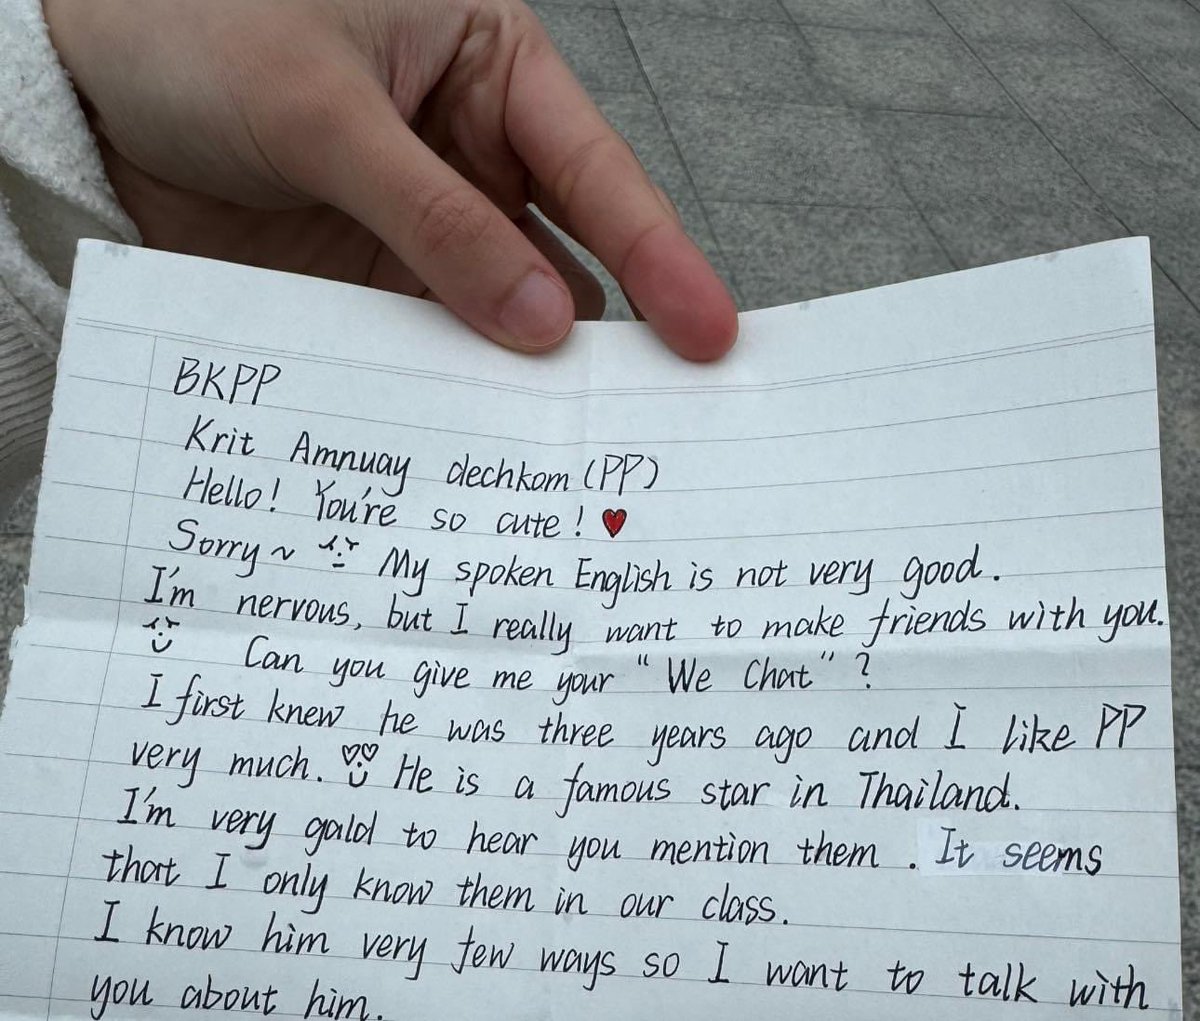 BKPP
Krit Amnuay dechkom (PP)
Hello! You're so cute! ♥
Sorry~ My spoken English is not very good.
I'm nervous, but I really want to make friends with you.
Can you give me your "We Chat"?
I first knew he was three years ago and I like PP
very much. He is a famous star in Thailand.
I'm very gald to hear you mention them. It seems
that I only know them in our class.
I know him very few ways so I want to talk with
you about him.